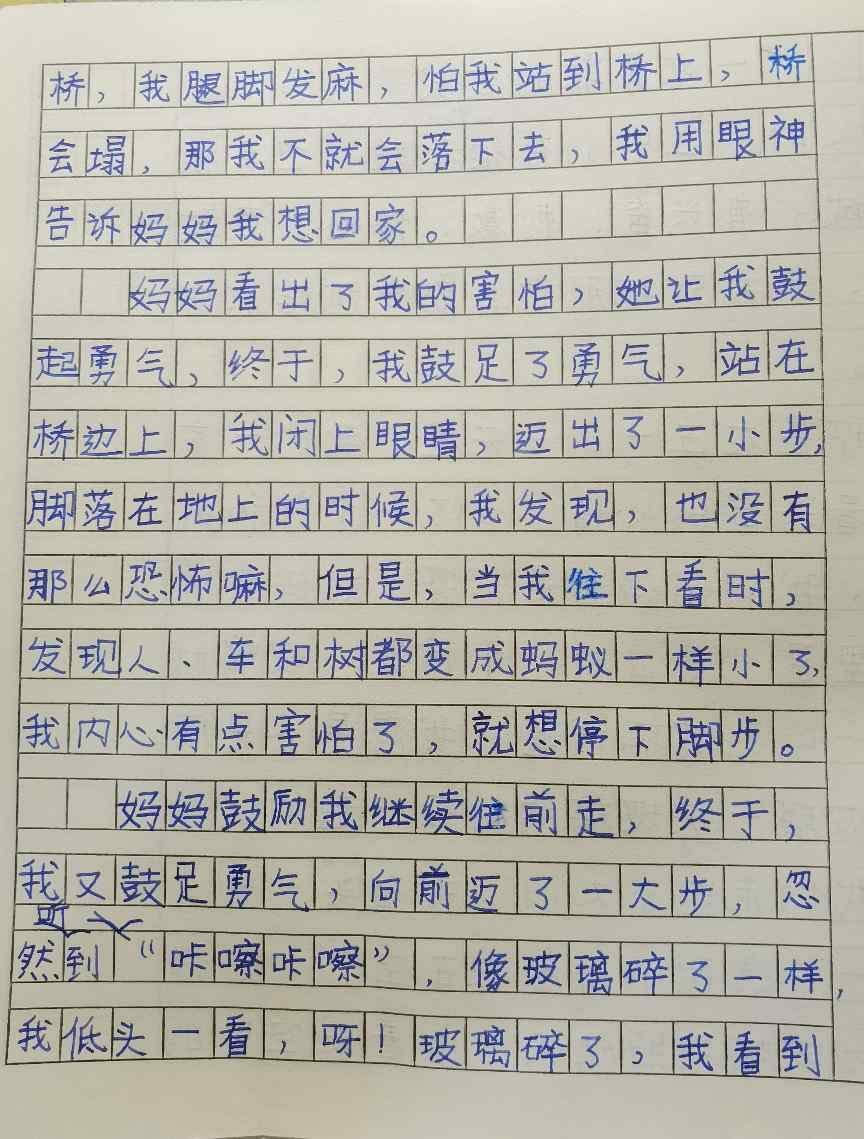 桥，我腿脚发麻，怕我站到桥上，桥
会塌，那我不就会落下去，我用眼神
告诉妈妈我想回家。
妈妈看出了我的害怕，她让我鼓
起勇气，终于，我鼓足了勇气，站在
桥边上，我闭上眼睛，迈出了一小步，
脚落在地上的时候，我发现，也没有
那么恐怖嘛，但是，当我往下看时，
发现人、车和树都变成蚂蚁一样小了，
我内心有点害怕了，就想停下脚步。
妈妈鼓励我继续往前走，终于，
我又鼓足勇气，向前迈了一大步，忽
然听到“咔嚓咔嚓”，像玻璃碎了一样，
我低头一看，呀！玻璃碎了，我看到